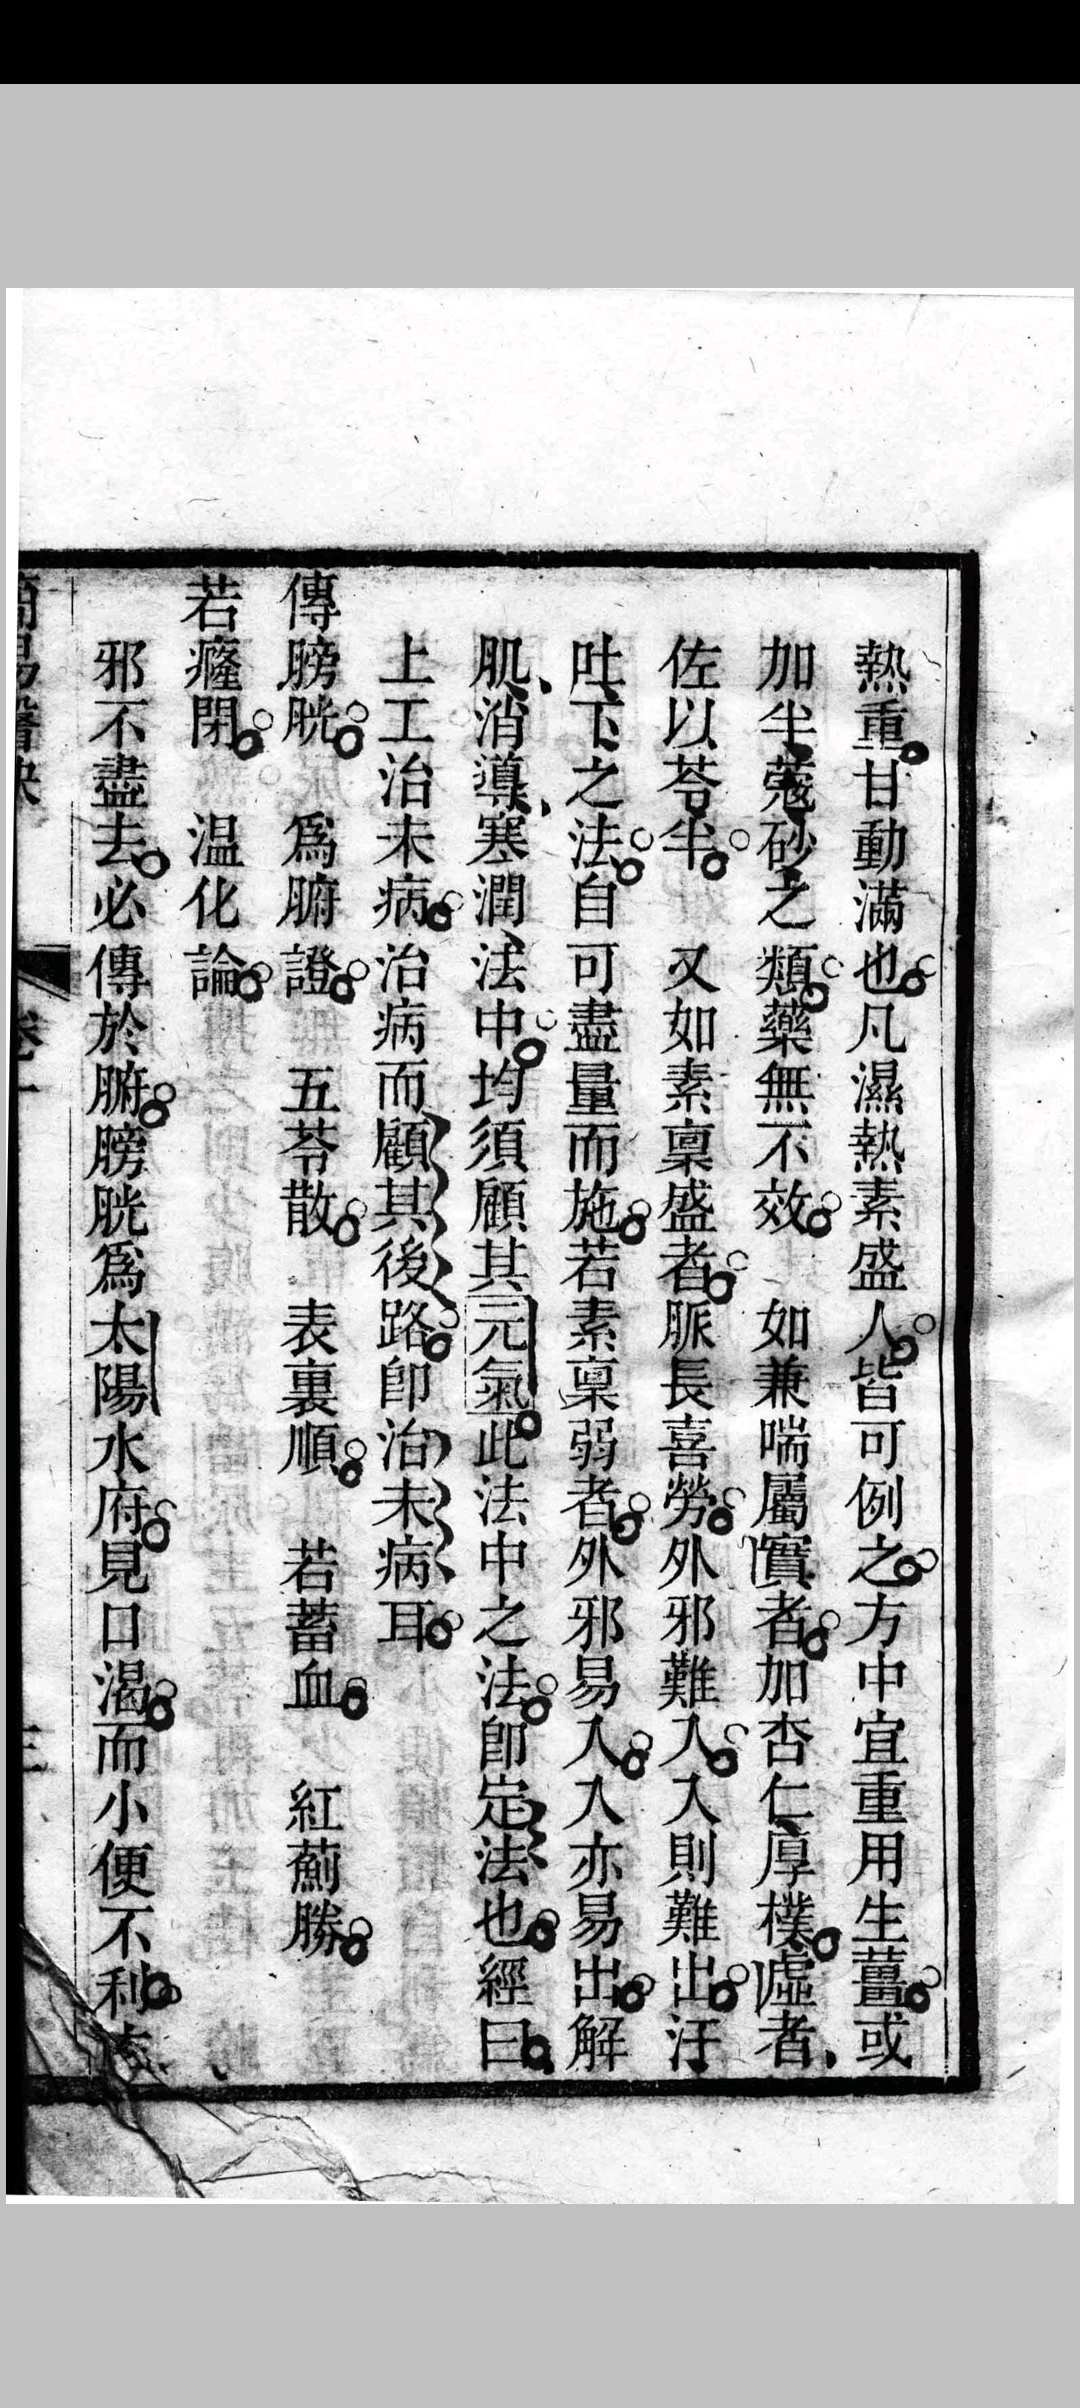 熱重甘動滿也凡濕熱素盛人皆可例之方中宜重用生薑或
加半蔻砂之類藥無不效　如兼喘屬實者加杏仁厚樸虛者
佐以苓半　又如素稟盛者脈長喜勞外邪難入入則難出汗
吐下之法自可盡量而施若素稟弱者外邪易入入亦易出解
肌消導塞潤法中均須顧其元氣此法中之法即定法也經曰
上工治未病治病而顧其後路即治未病耳
傳膀胱　爲腑證　五苓散　表裏順　若蓄血　紅薊勝
若癃閉　温化論
邪不盡去必傳於腑膀胱爲太陽水府見口渴而小便不利
簡易醫訣　卷一　三